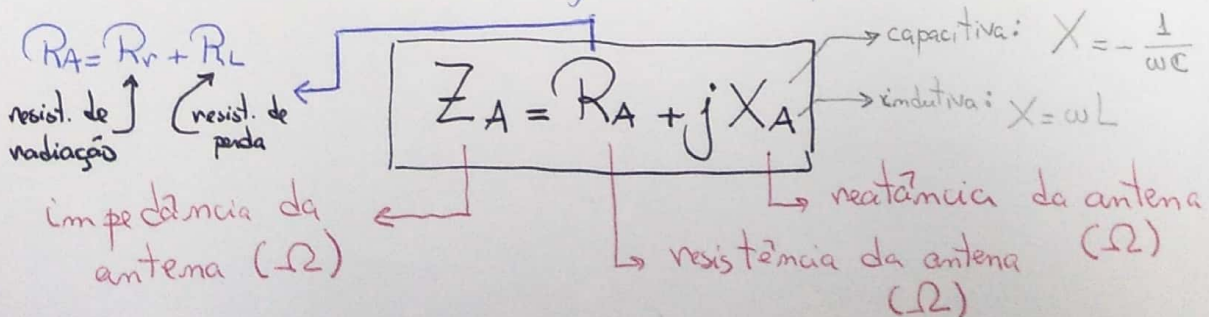 R_A = R_r + R_L
resist. de radiação
resist. de perda
Z_A = R_A + j X_A
capacitiva: X = - 1/ωC
indutiva: X = ωL
impedância da
antena (Ω)
resistência da antena
(Ω)
reatância da antena
(Ω)